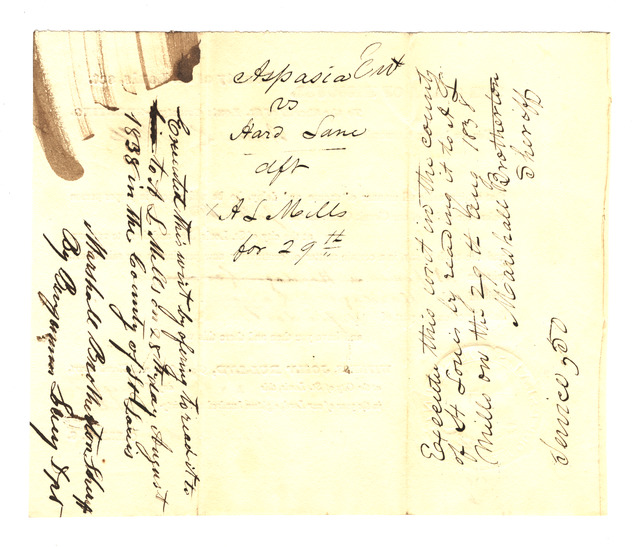 Aspasia Ent
vs
Hard Lane
dft
x A L Mills
for 29th
Executed this writ by offering to read it to
to A L Mills on 28th day August
1838 in the County of St Louis
Marshall Brotherton Shrff
By Dpt
Execute this writ in the county
of St Louis by reading it to A L
Mills on the 29th Aug 1838
Marshall Brotherton
Sheriff
Service 50